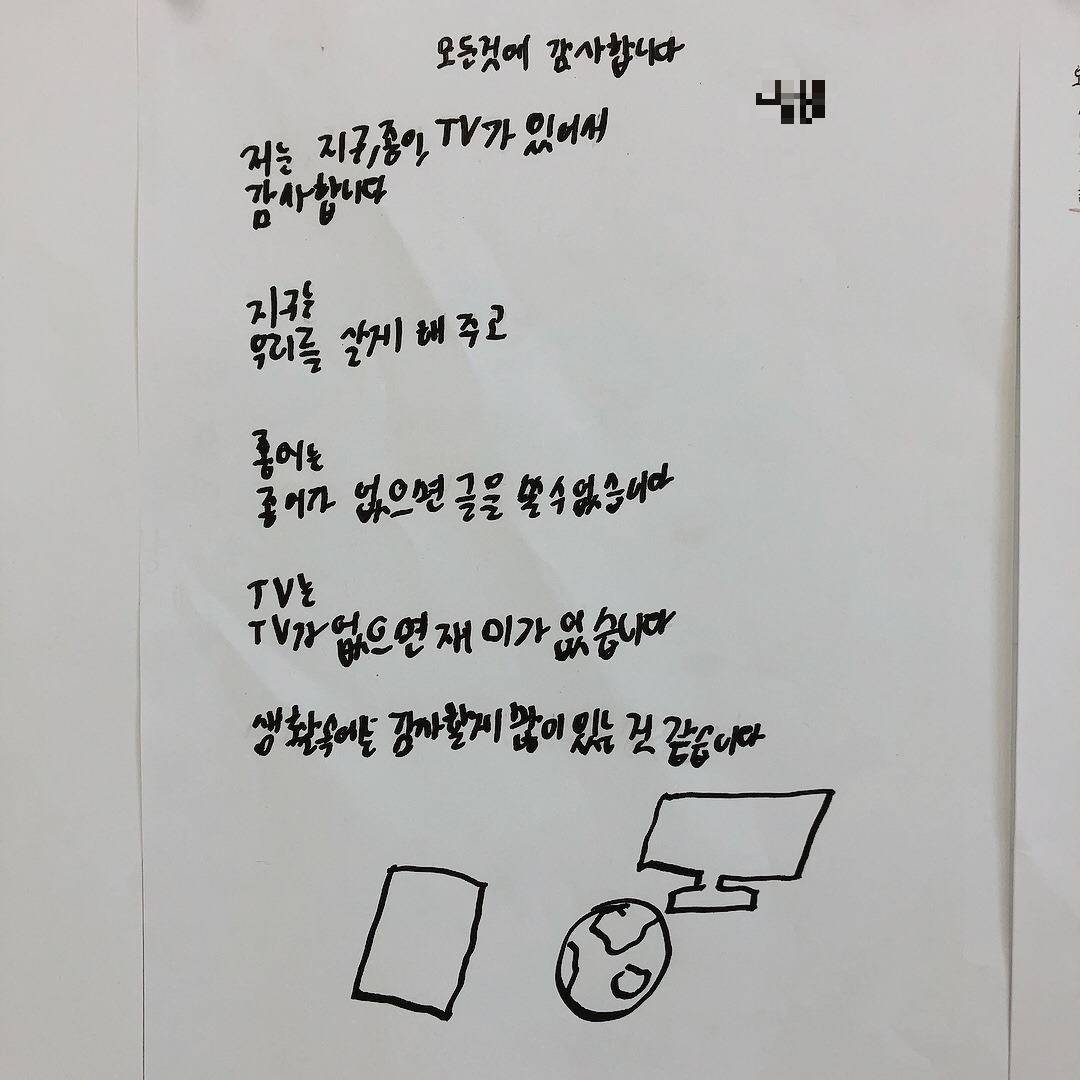 모든것에 감사합니다
저는 지구,종이,TV가 있어서
감사합니다
지구는
우리를 살게 해 주고
종이는
종이가 없으면 글을 쓸 수 없습니다
TV는
TV가 없으면 재미가 없습니다
생활속에는 감사할게 많이 있는 것 같습니다